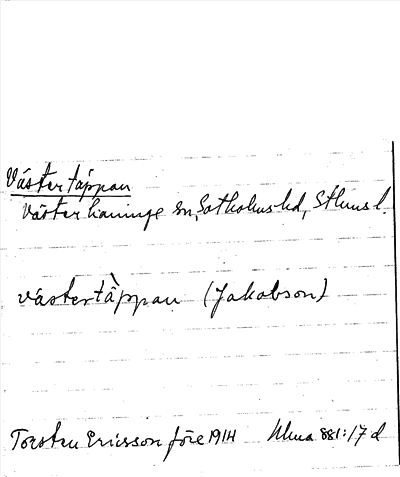 Västertäppan
Västerhaninge sn, Sotholms hd, Sthms l.
västertä̀ppan (Jakobson)
Torsten Ericsson före 1914 Ulma 881:17 d